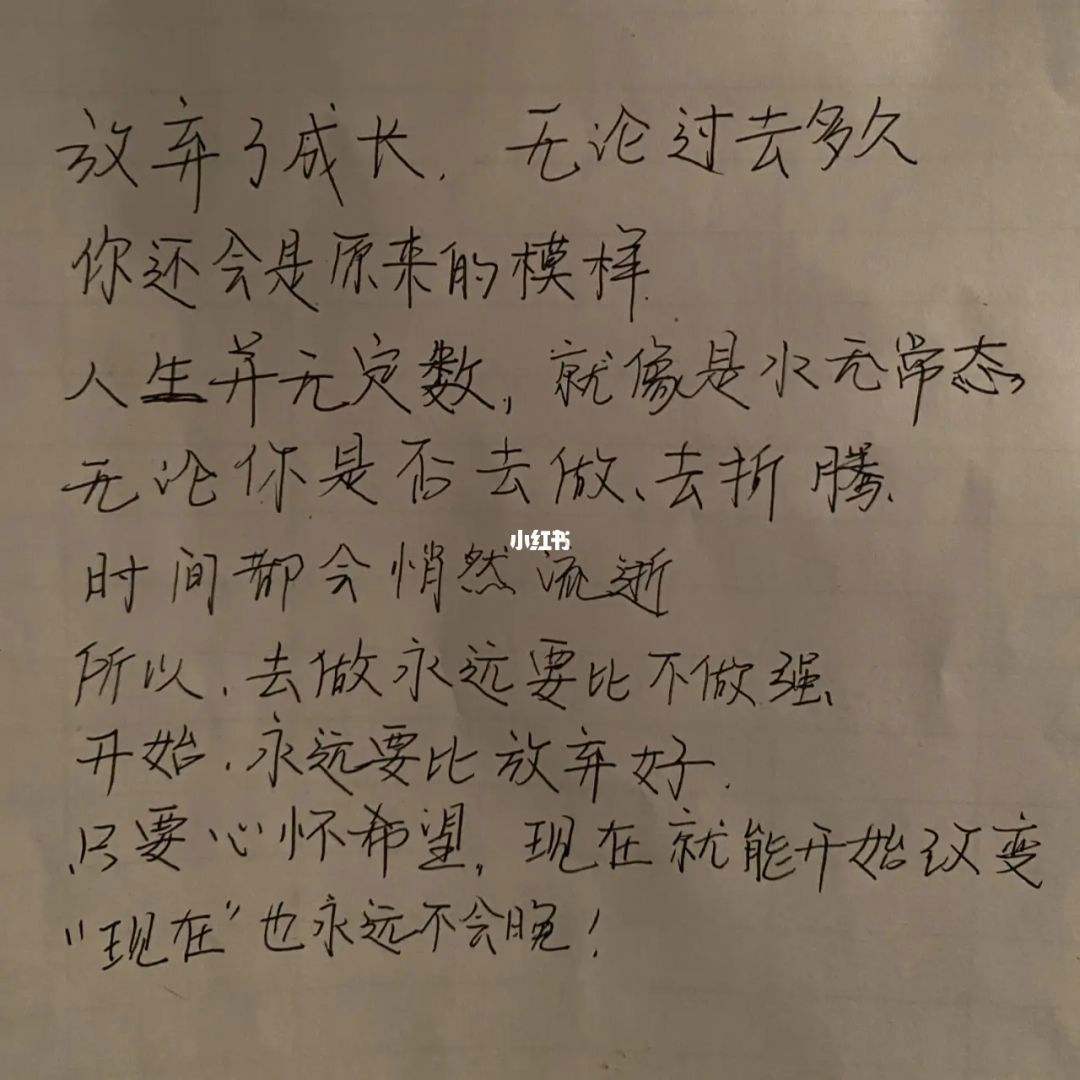 放弃了成长,无论过去多久
你还会是原来的模样.
人生并无定数,就像是水无常态,
无论你是否去做、去折腾.
小红书
时间都会悄然流逝
所以,去做永远要比不做强、
开始,永远要比放弃好.
只要心怀希望,现在就能开始改变
“现在”也永远不会晚!